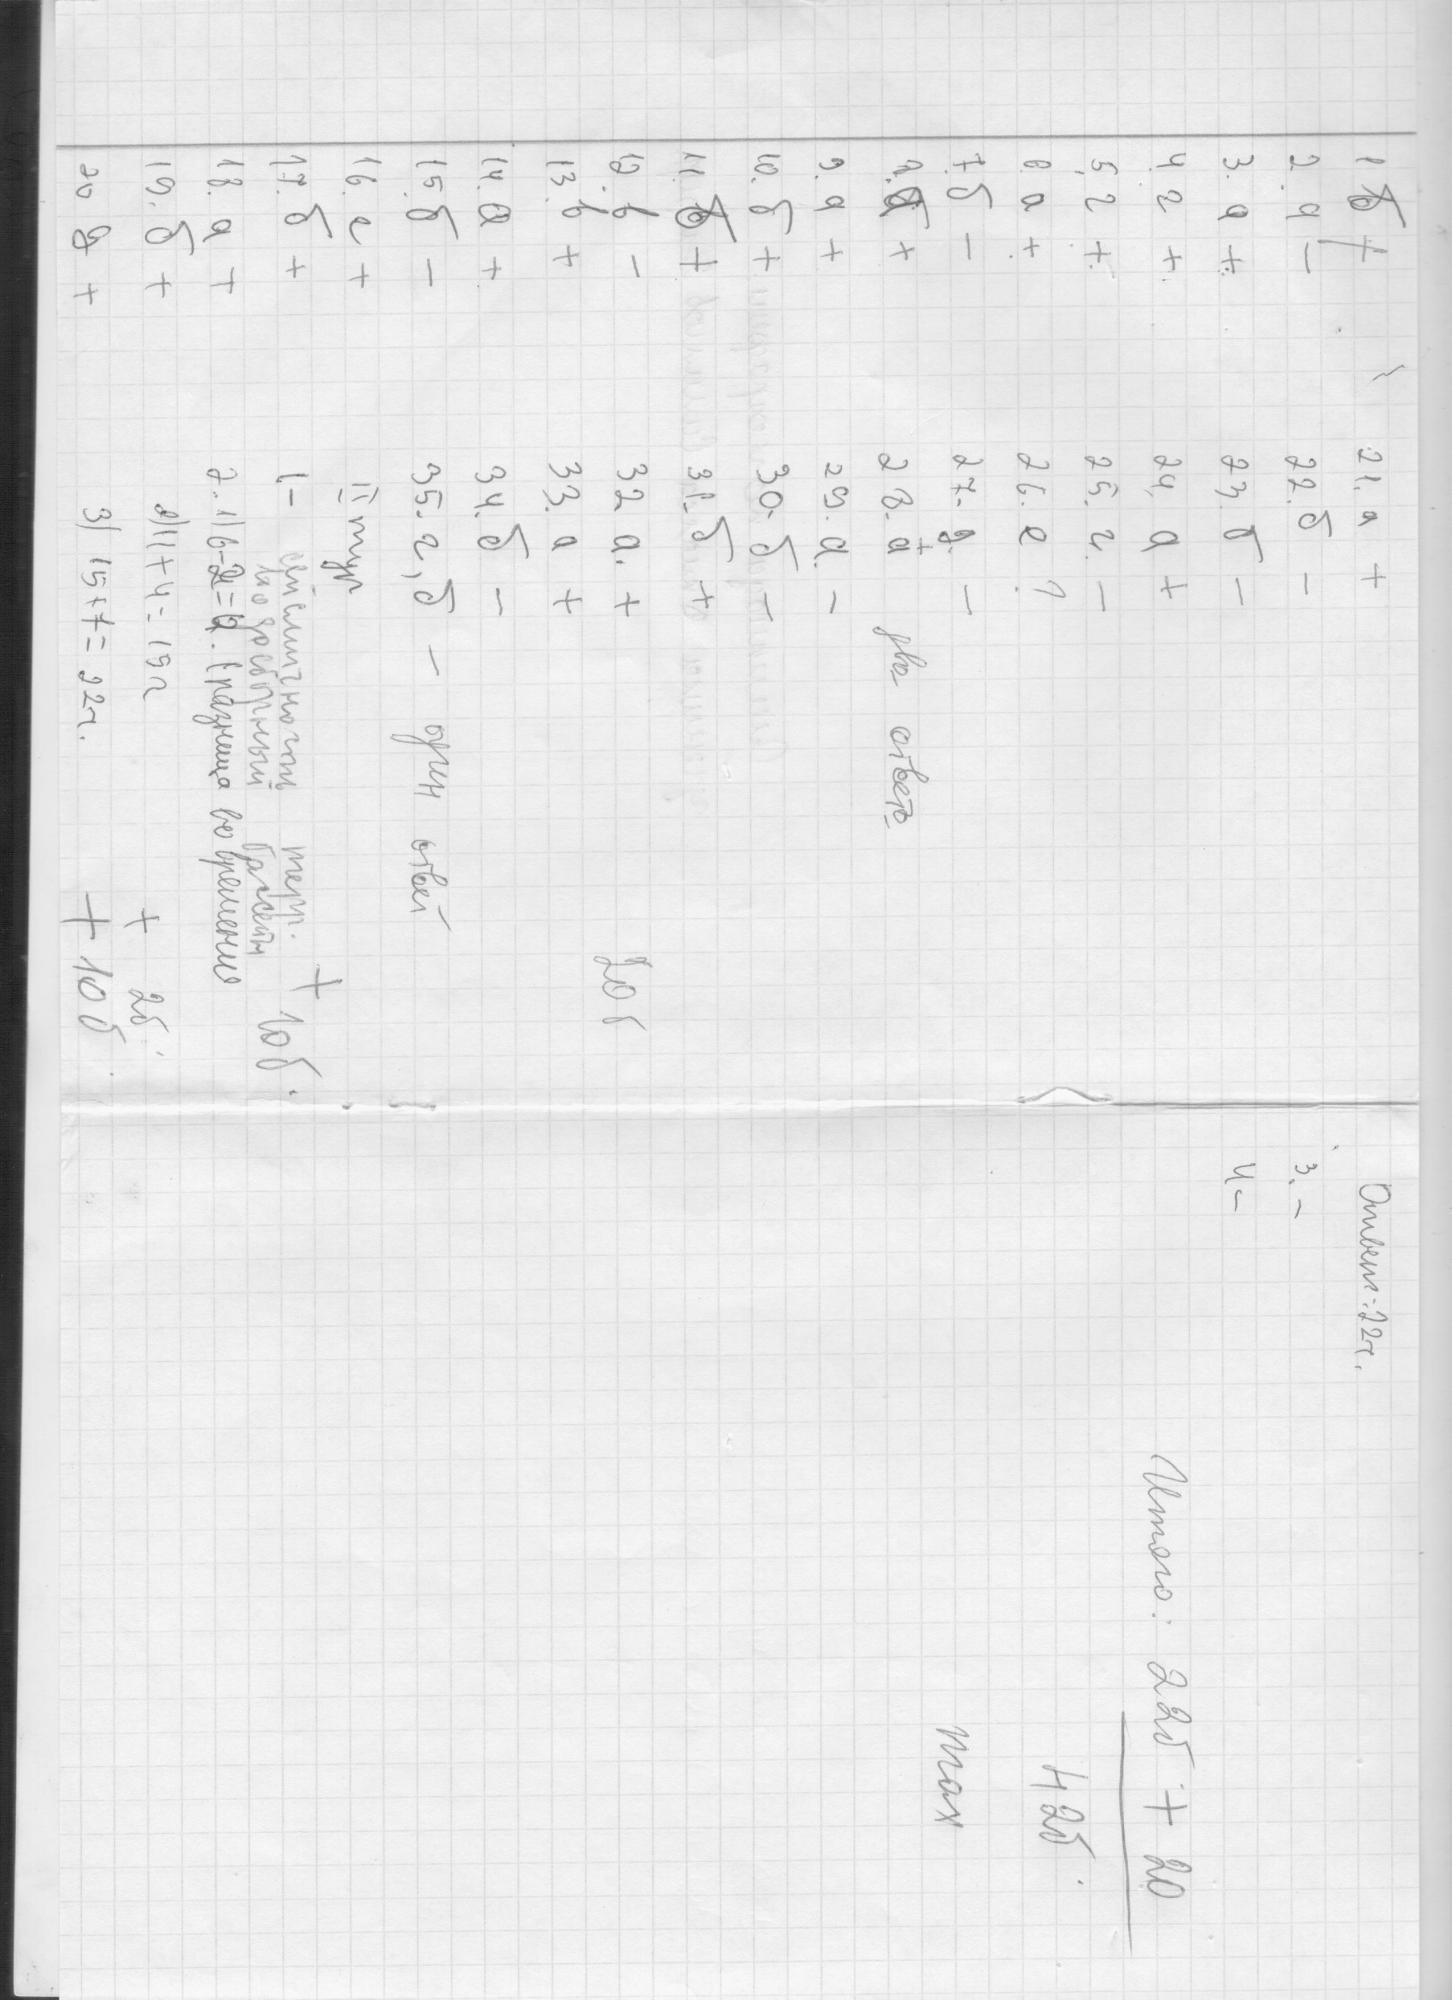 1 б +
2. а –
3. а +
4. г +
5. г +
6. а +
7. б –
8. б +
9. а +
10. б +
11. б +
12. в –
13. в +
14. а +
15. б –
16. г +
17. б +
18. а +
19. б +
20 +
21. а +
22. б –
23. б –
24. а +
25. г. –
26. ?
27. –
28. а + два ответа
29. а. –
30. б –
31. б +
32 а. +
33. а +
34. б –
35. г, б – один ответ
20 б
II тур
1- сейсмичность терр.
водосборный бассейн
+ 10 б.
2. 1) 6-2=4. (разница во времени
2) 11+4=15ч + 2б.
3) 15+7=22ч. + 10 б
Ответ: 22ч.
3. –
4 –
Итого: 22б + 20
42б.
max